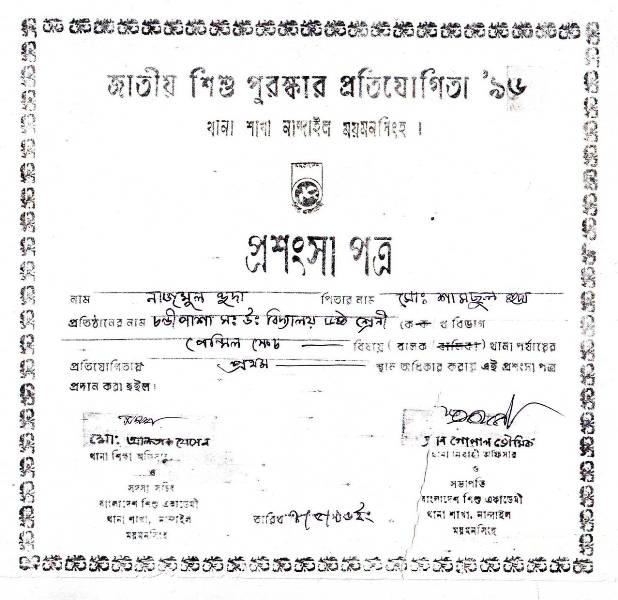 জাতীয় শিশু পুরস্কার প্রতিযোগিতা '৯৬
থানা শাখা নান্দাইল ময়মনসিংহ ।
প্রশংসা পত্র
নাম নাজমুল হুদা পিতার নাম মোঃ শামছুল হুদা
প্রতিষ্ঠানের নাম চন্ডীপাশা সঃ উঃ বিদ্যালয় ৬ষ্ঠ শ্রেনী কে ক খ বিভাগ
পেন্সিল স্কেচ বিষয়ে ( বালক / বালিকা ) থানা পর্যায়ের
প্রতিযোগিতায় প্রথম স্থান অধিকার করায় এই প্রশংসা পত্র
প্রদান করা হইল ।
মোঃ হোসেন
থানা শিক্ষা অফিসার
ও
সদস্য সচিব
বাংলাদেশ শিশু একাডেমী
থানা শাখা, নান্দাইল
ময়মনসিংহ
তারিখ
গোপাল ভৌমিক
থানা নির্বাহী অফিসার
ও
সভাপতি
বাংলাদেশ শিশু একাডেমী
থানা শাখা, নান্দাইল
ময়মনসিংহ